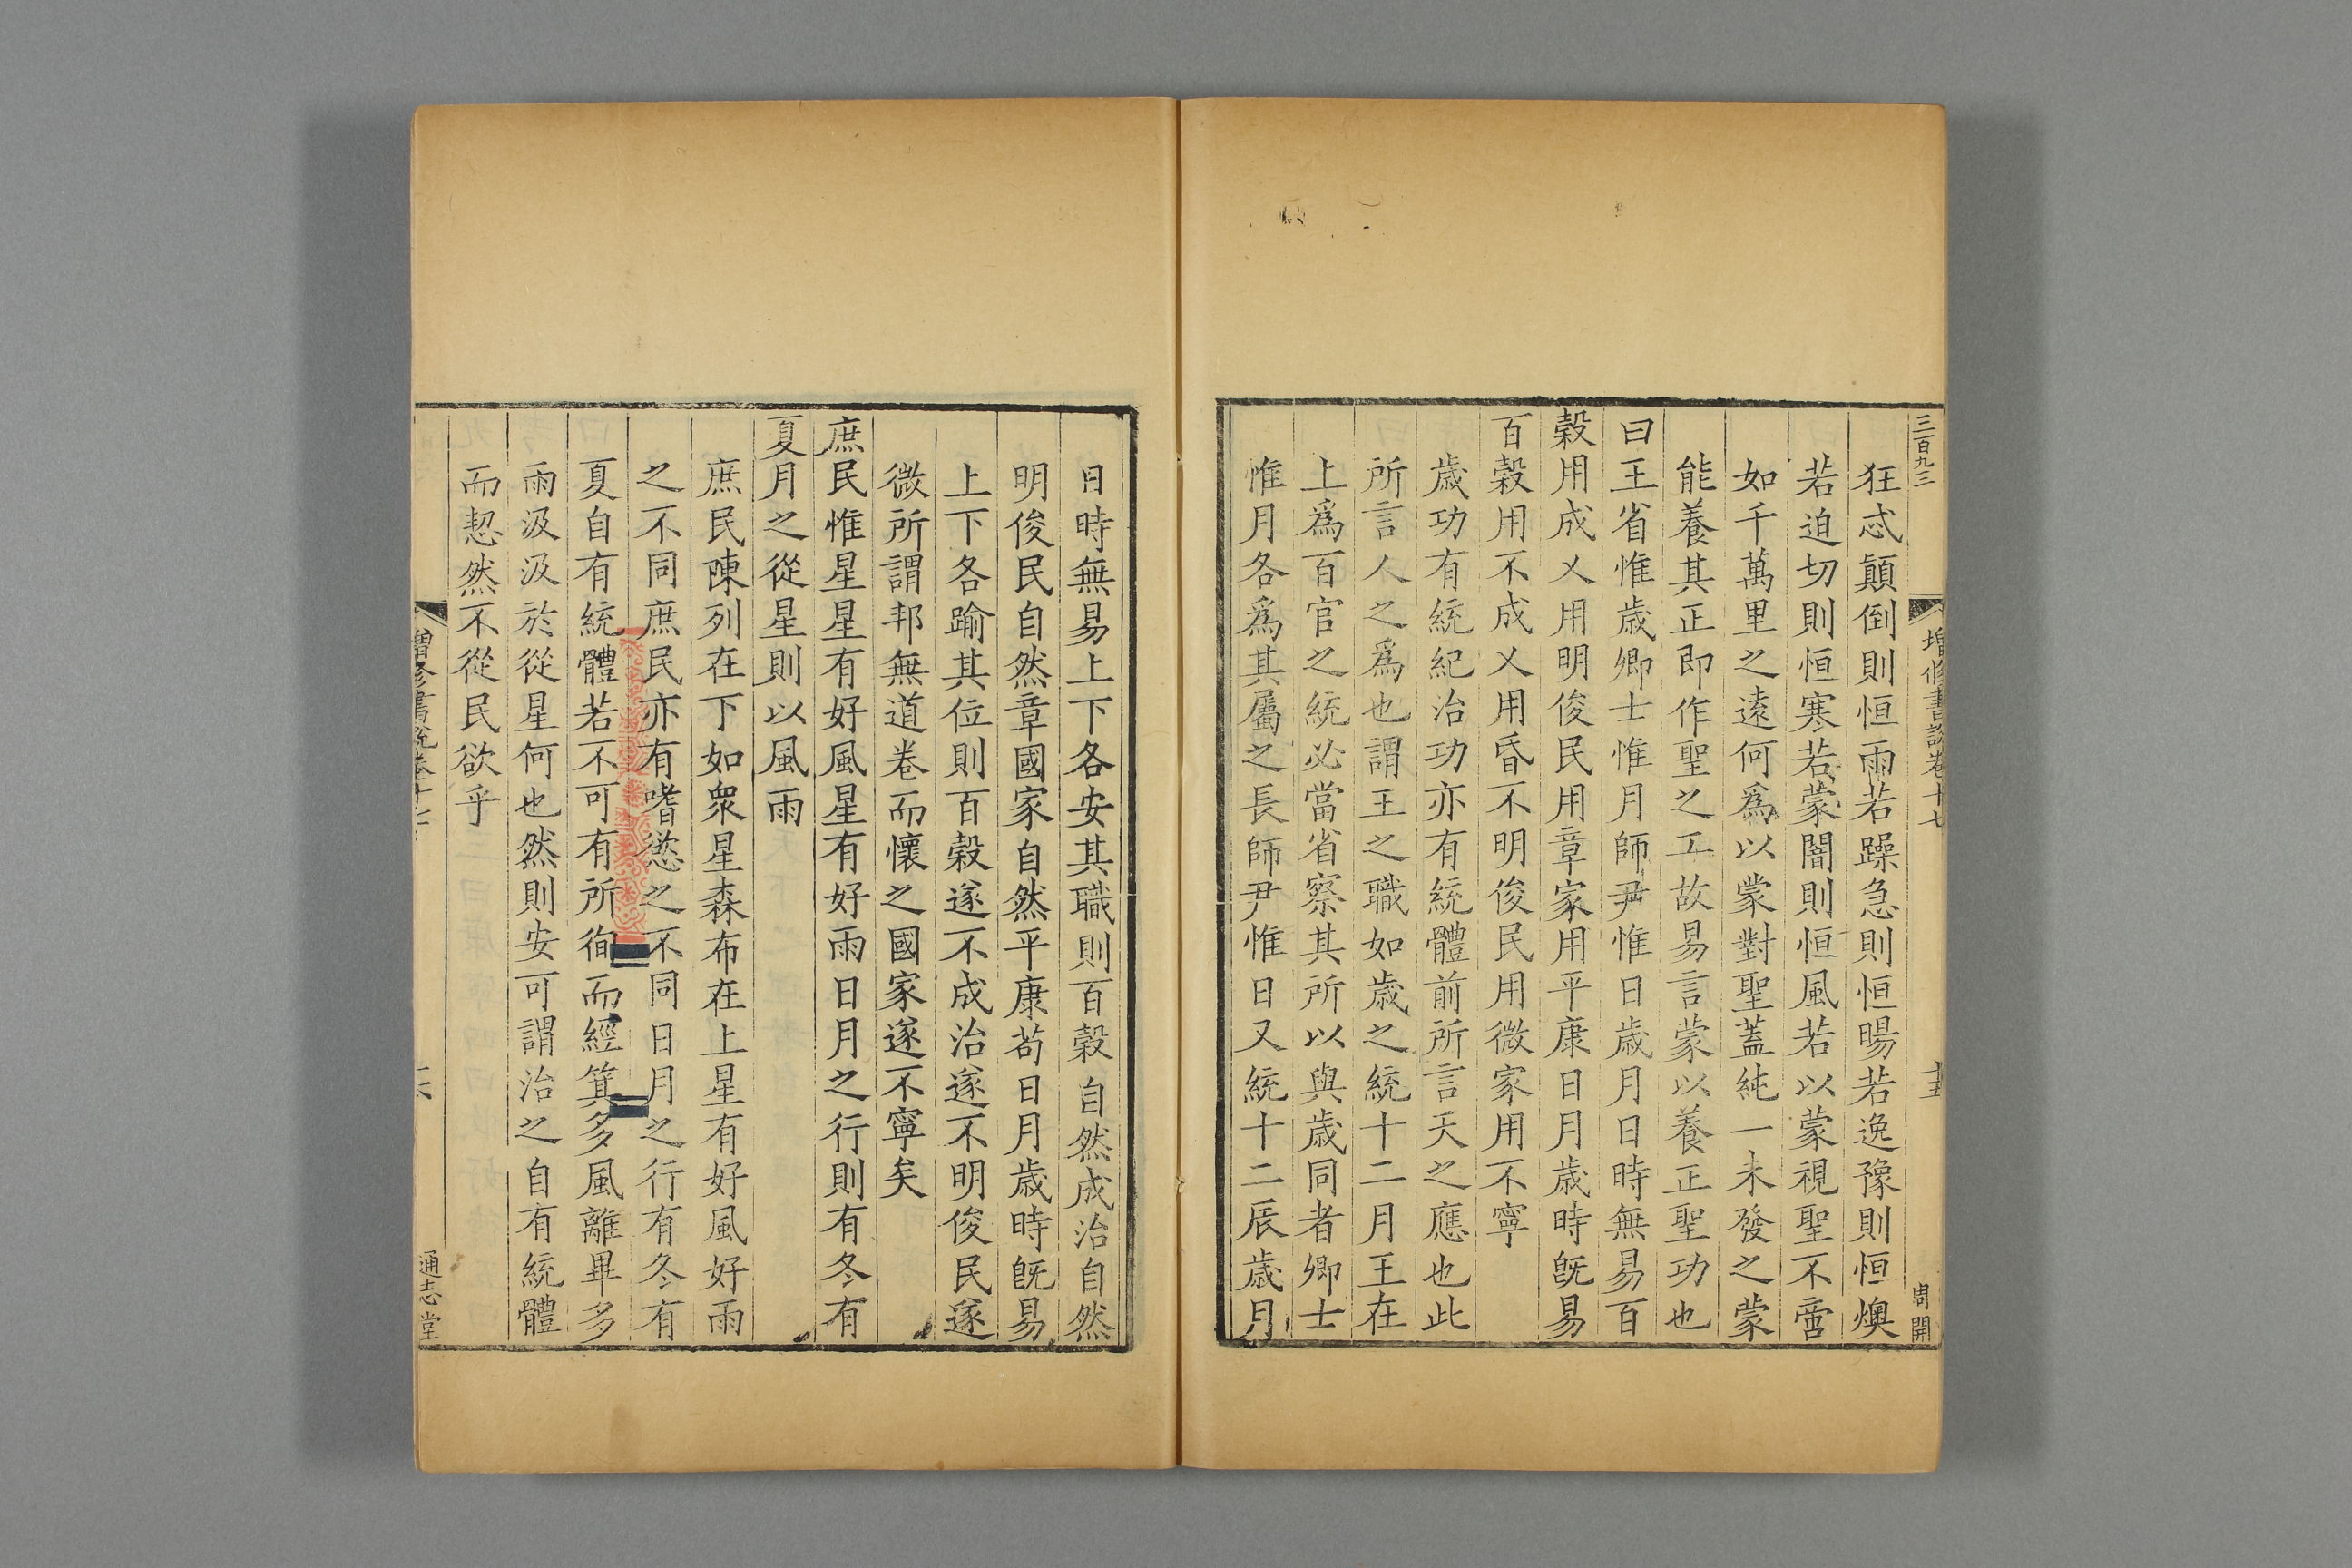 三百九三
增修書說卷十七
十五
周開
狂忒顚倒則恒雨若躁急則恒暘若逸豫則恒燠
若迫切則恒寒若蒙闇則恒風若以蒙視聖不啻
如千萬里之遠何爲以蒙對聖蓋純一未發之蒙
能養其正即作聖之工故易言蒙以養正聖功也
曰王省惟歳卿士惟月師尹惟日歳月日時無易百
穀用成乂用明俊民用章家用平康日月歳時旣易
百穀用不成乂用昏不明俊民用微家用不寧
歳功有統紀治功亦有統體前所言天之應也此
所言人之爲也謂王之職如歳之統十二月王在
上爲百官之統必當省察其所以與歳同者卿士
惟月各爲其屬之長師尹惟日又統十二辰歳月
日時無易上下各安其職則百穀自然成治自然
明俊民自然章國家自然平康苟日月歳時旣易
上下各踰其位則百穀遂不成治遂不明俊民遂
微所謂邦無道卷而懷之國家遂不寧矣
庶民惟星星有好風星有好雨日月之行則有冬有
夏月之從星則以風雨
庶民陳列在下如衆星森布在上星有好風好雨
之不同庶民亦有嗜慾之不同日月之行有冬有
夏自有統體若不可有所徇而經箕多風離畢多
雨汲汲於從星何也然則安可謂治之自有統體
而恝然不從民欲乎
增修書說卷十七
十六
通志堂